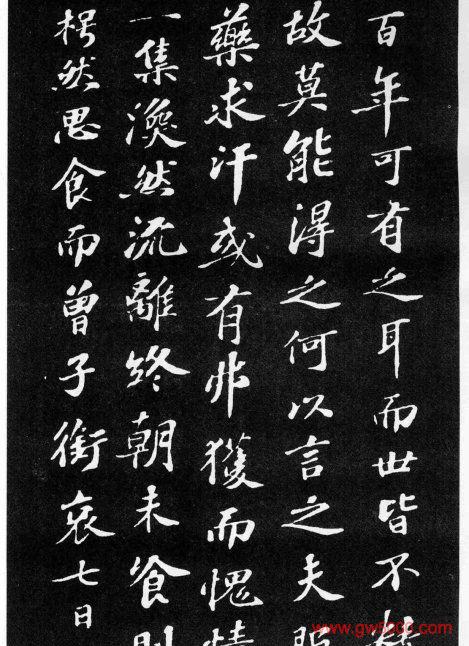 百年可有之耳而世皆不
故莫能得之何以言之夫
藥求汗或有弗獲而愧情
一集渙然流離終朝未餐則
枵然思食而曾子銜哀七日
www.gw5000.com